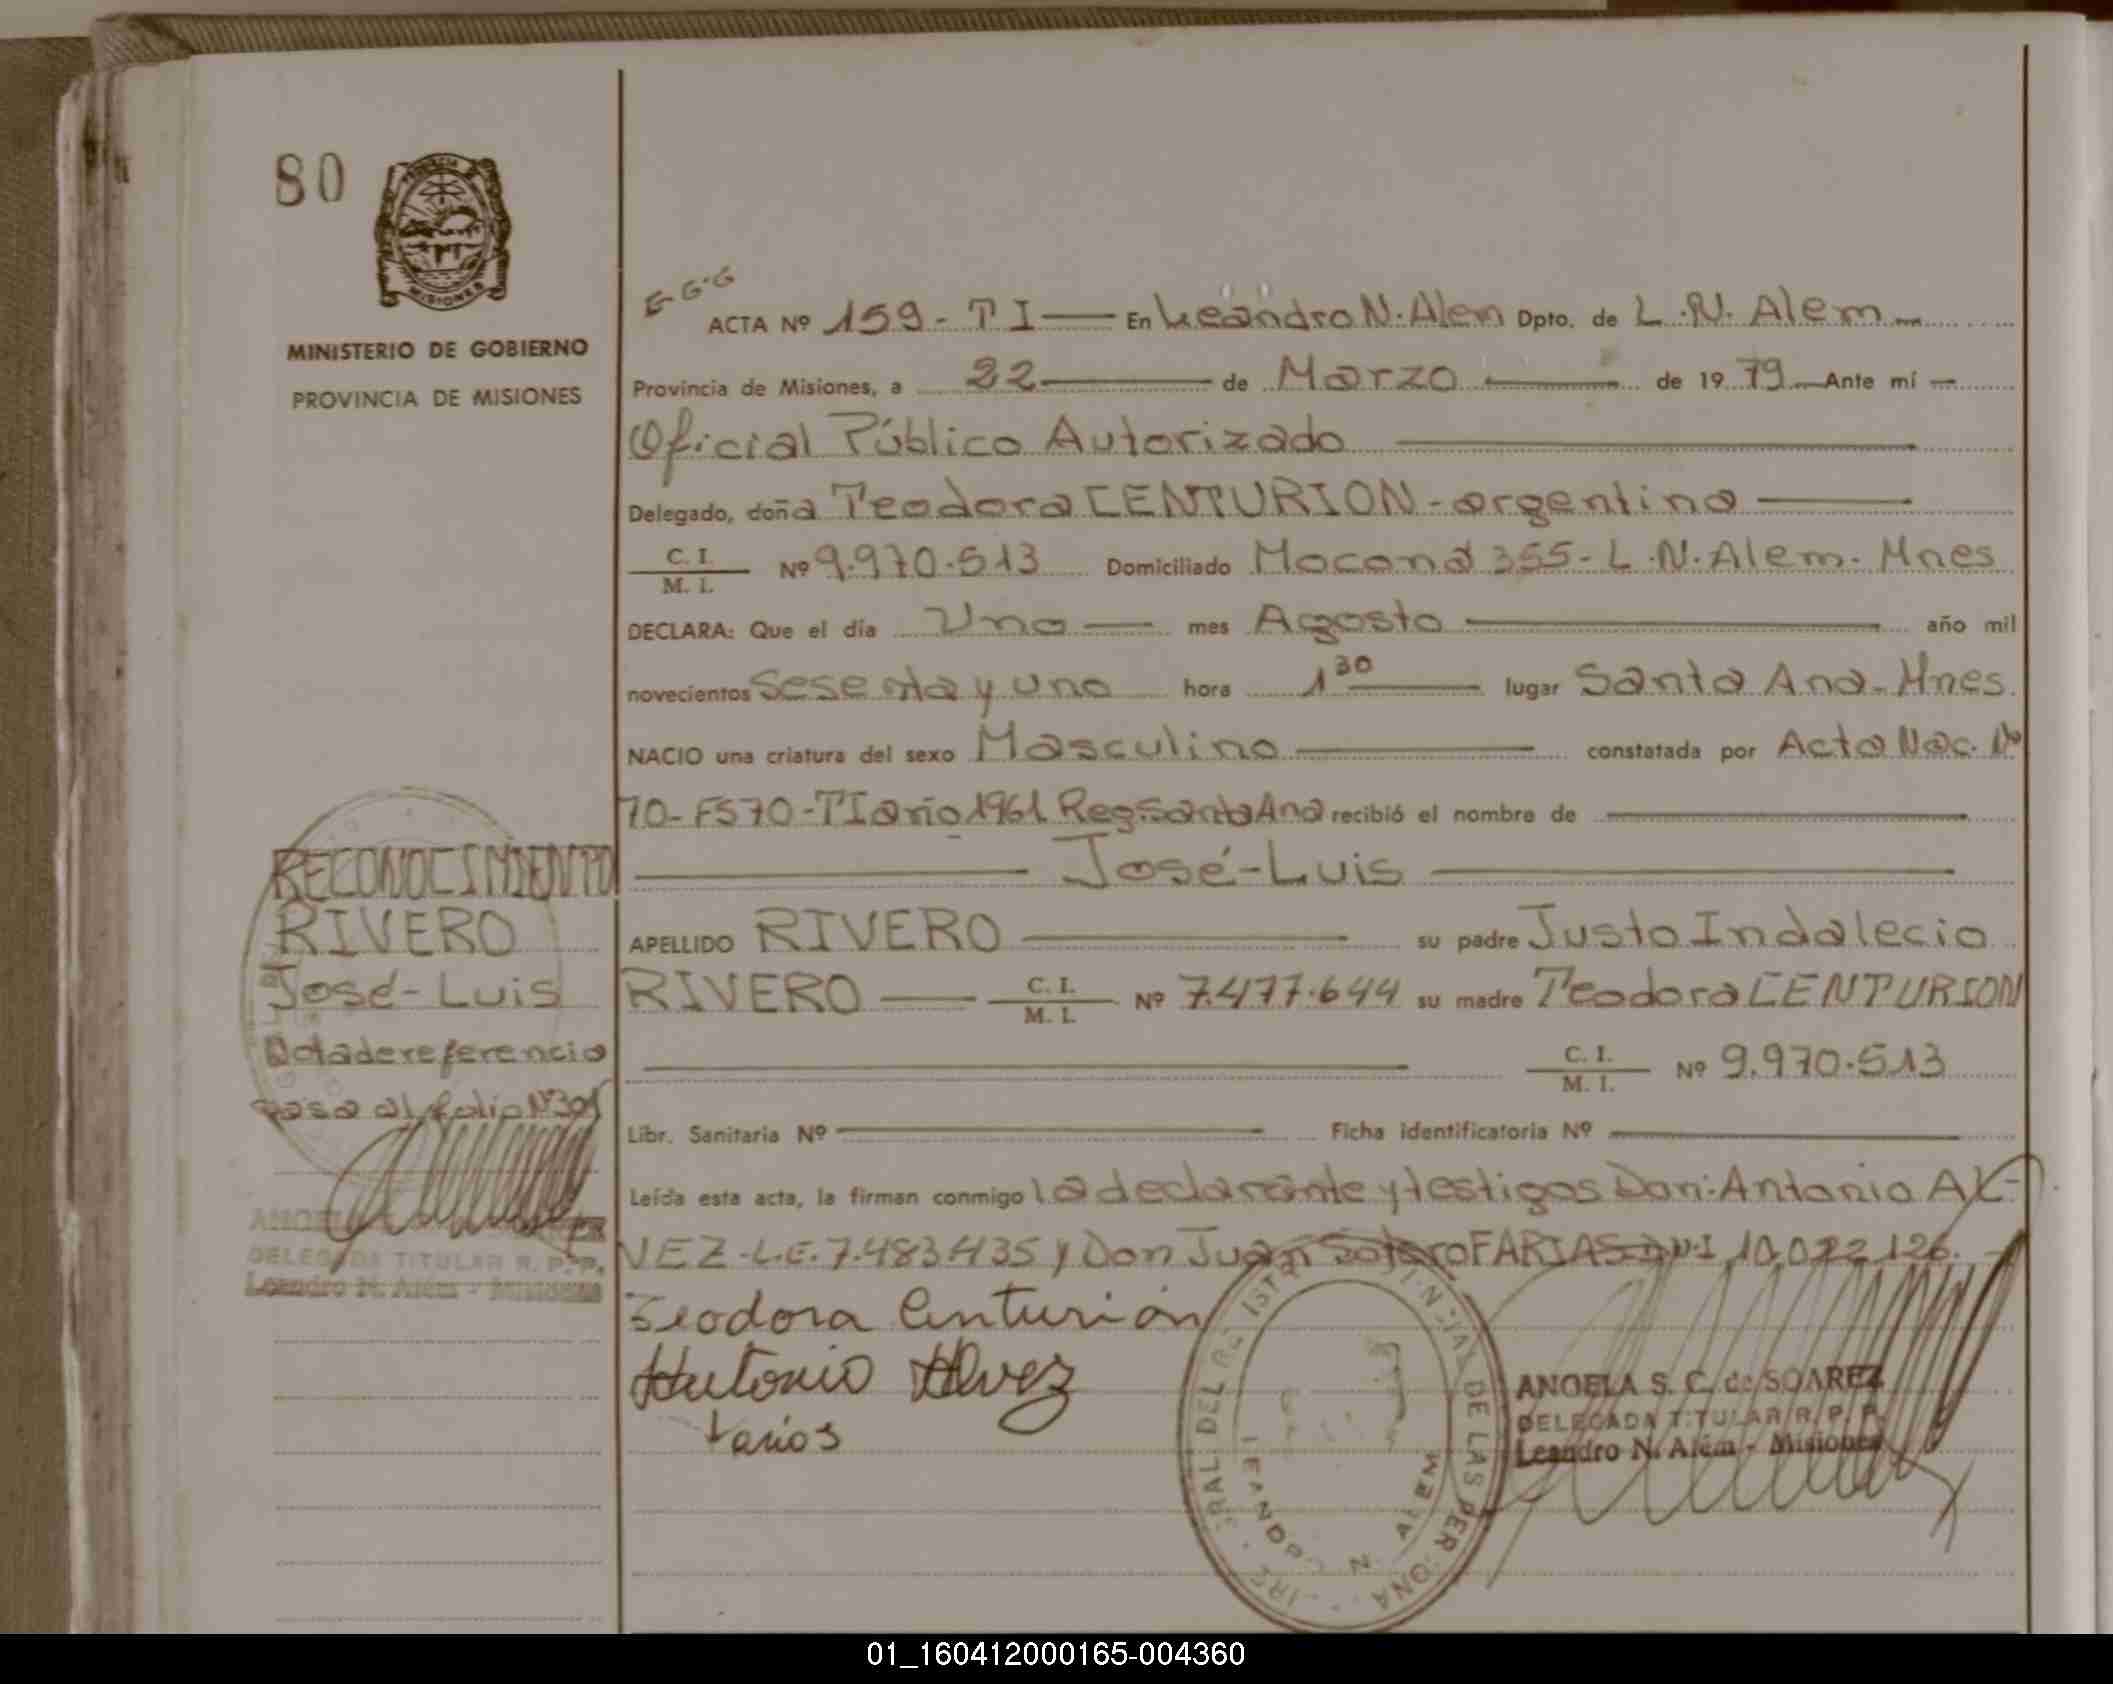 80
MINISTERIO DE GOBIERNO
PROVINCIA DE MISIONES
G.G.
ACTA Nº 159 - T I — En Leandro N. Alem Dpto. de L. N. Alem
Provincia de Misiones, a 22 de Marzo de 1979 Ante mí
Oficial Público Autorizado
Delegado, doña Teodora CENTURION - argentina
C. I. / M. I. Nº 9.970.513 Domiciliado Mocona 355 - L. N. Alem - Mnes
DECLARA: Que el día Uno mes Agosto año mil
novecientos Sesenta y uno hora 1 30 lugar Santa Ana - Mnes.
NACIO una criatura del sexo Masculino constatada por Acta Nac. Nº
70 - FS 70 - T I año 1961 Reg. Santa Ana recibió el nombre de
José - Luis
APELLIDO RIVERO su padre Justo Indalecio
RIVERO C. I. / M. I. Nº 7.477.644 su madre Teodora CENTURION
C. I. / M. I. Nº 9.970.513
Libr. Sanitaria Nº Ficha identificatoria Nº
Leída esta acta, la firman conmigo la declarante y testigos Don: Antonio AL-
VEZ - L.E. 7.483.435 y Don Juan Sotero FARIAS D.N.I 10.022.126.
Teodora Centurión
Antonio Alvez
Farias
ANGELA S. C. de SOAREZ
DELEGADA TITULAR R. P. P.
Leandro N. Além - Misiones
RECONOCIMIENTO
RIVERO
José - Luis
Nota de referencia
pasa al folio Nº 305
DELEGADA TITULAR R. P. P.
Leandro N. Além - Misiones
LEANDRO N. ALEM
01_160412000165-004360